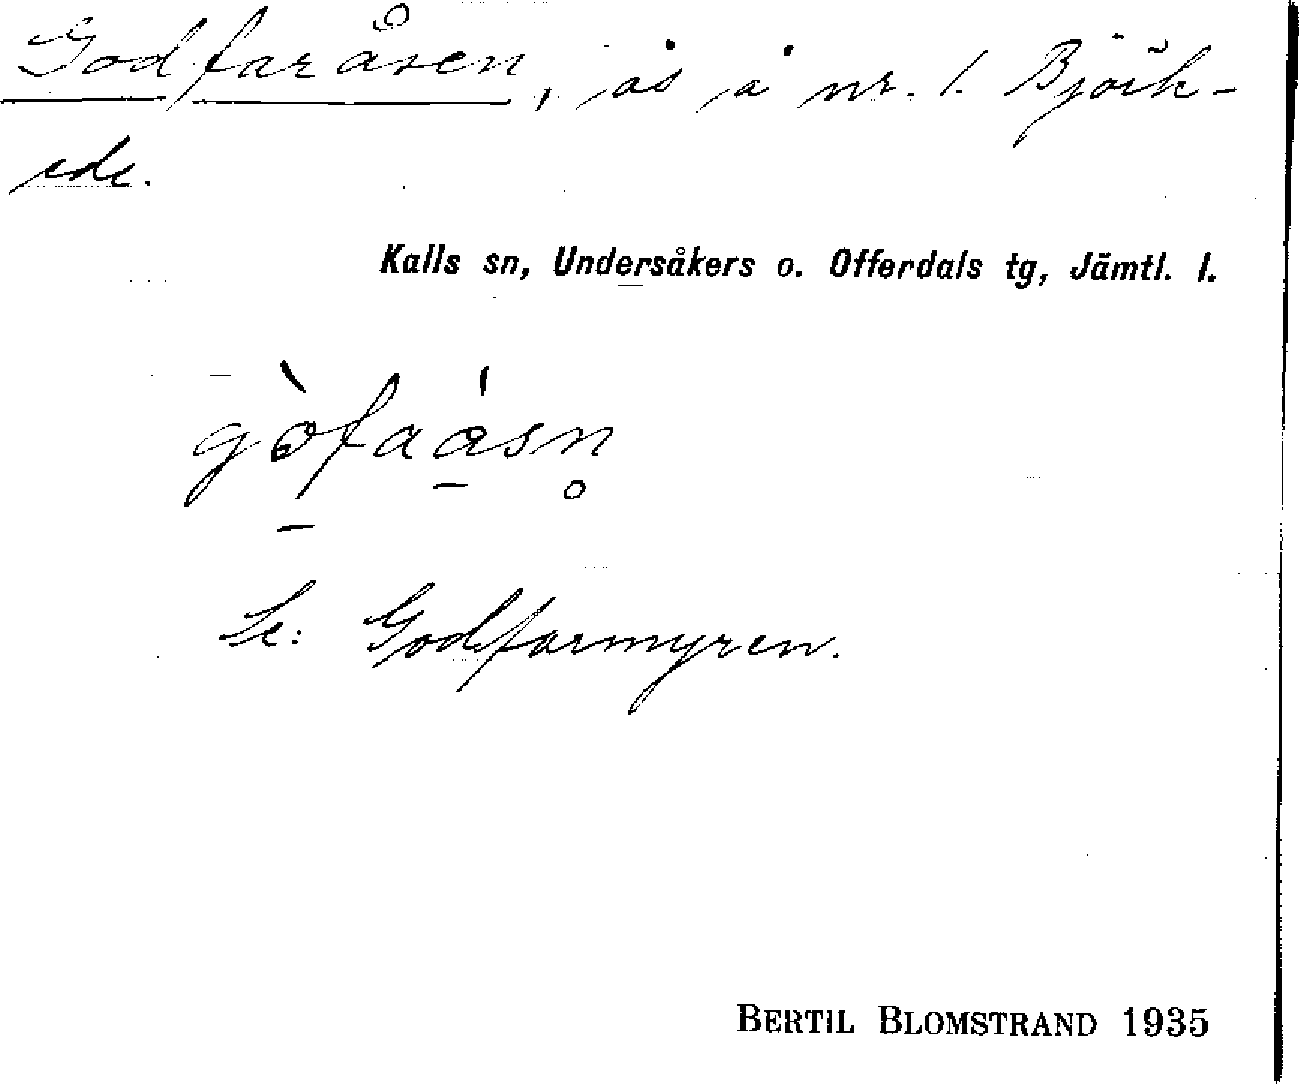 Godfaråsen, ås å nr. 1. Björk-
ede.
Kalls sn, Undersåkers o. Offerdals tg, Jämtl. l.
gòfaåsn̥
Se: Godfarmyren.
BERTIL BLOMSTRAND 1935